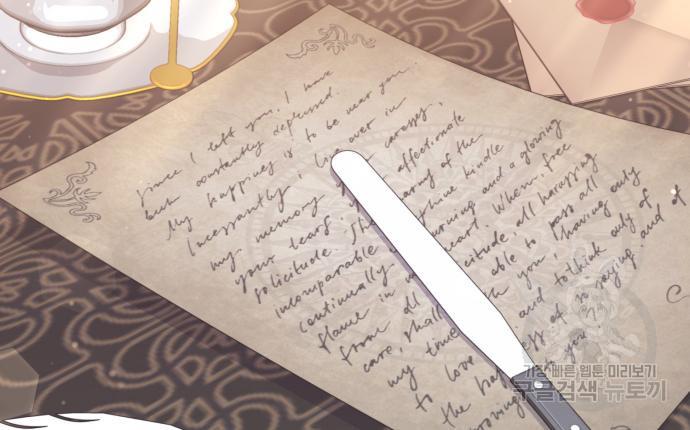 since I left you, I have
but constantly depressed.
My happiness is to be near you.
Incessantly i live over in
my memory your caresses,
your tears, your affectionate
solicitude. The charms of the
incomparable Josephine kindle
continually a burning and a glowing
flame in my heart. When, free
from all solicitude, all harassing
care, shall I be able to pass all
my time with you, having only
to love you, and to think only of
the happiness of so saying, and of
proving you
가장 빠른 웹툰 미리보기
구글검색 뉴토끼